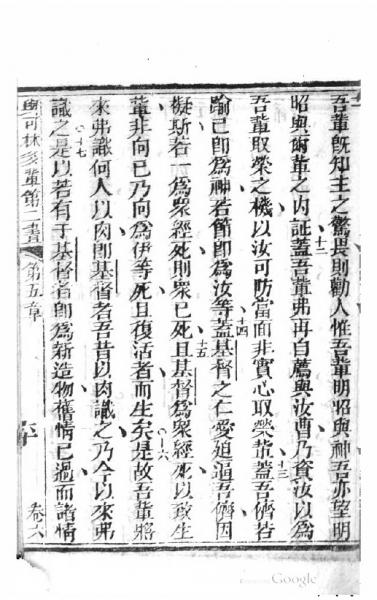 吾輩既知主之驚畏則勸人惟吾輩明昭與神吾亦望明
十二
昭與爾輩之內証蓋吾輩弗再自薦與汝曹乃資汝以爲
吾輩取榮之機以汝可防當面非實心取榮輩蓋吾儕若
十三
踰己即爲神若節即爲汝等蓋基督之仁愛廹逼吾儕因
十四
擬斯若一爲衆經死則衆已死且基督爲衆經死以致生
十五
輩非向己乃向爲伊等死且復活者而生矣是故吾輩將
十六
來弗識何人以肉即基督者吾昔以肉識之乃今以來弗
識之是以若有于基督者即爲新造物舊情已過而諸情
十七
與可林多輩第二書 第五章 卷六
Google